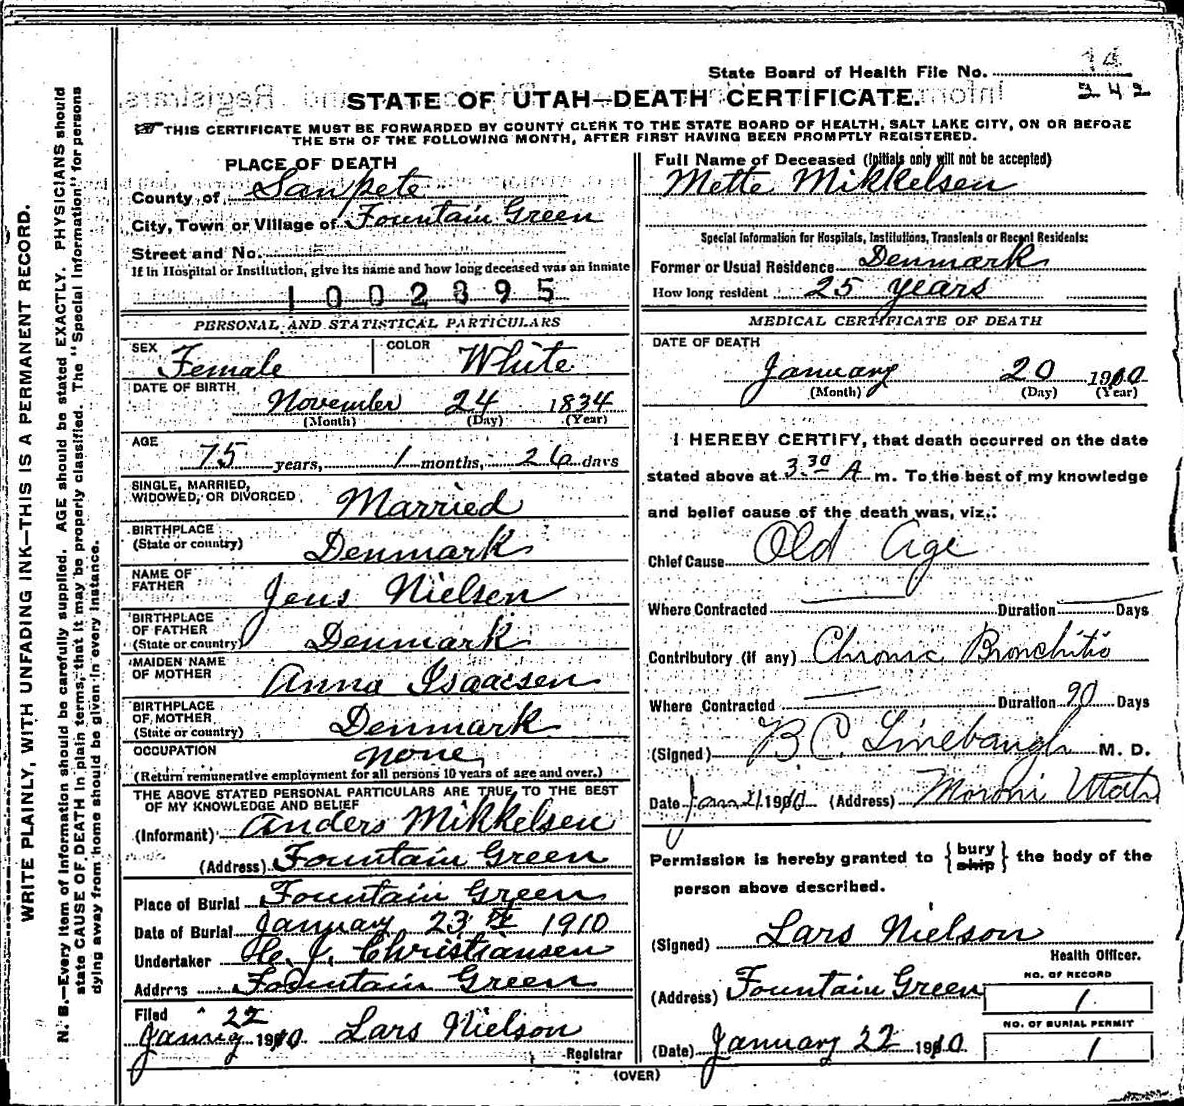 State Board of Health File No.
14
242
STATE OF UTAH—DEATH CERTIFICATE.
THIS CERTIFICATE MUST BE FORWARDED BY COUNTY CLERK TO THE STATE BOARD OF HEALTH, SALT LAKE CITY, ON OR BEFORE
THE 5TH OF THE FOLLOWING MONTH, AFTER FIRST HAVING BEEN PROMPTLY REGISTERED.
WRITE PLAINLY, WITH UNFADING INK—THIS IS A PERMANENT RECORD.
N. B.—Every item of information should be carefully supplied. AGE should be stated EXACTLY. PHYSICIANS should
state CAUSE OF DEATH in plain terms, that it may be properly classified. The "Special Information" for persons
dying away from home should be given in every instance.
PLACE OF DEATH
County of Sanpete
City, Town or Village of Fountain Green
Street and No.
If in Hospital or Institution, give its name and how long deceased was an inmate
1002895
PERSONAL AND STATISTICAL PARTICULARS
SEX Female COLOR White
DATE OF BIRTH
November 24 1834
(Month) (Day) (Year)
AGE
75 years, 1 months, 26 days
SINGLE, MARRIED,
WIDOWED, OR DIVORCED Married
BIRTHPLACE
(State or country) Denmark
NAME OF
FATHER Jens Nielsen
BIRTHPLACE
OF FATHER
(State or country) Denmark
MAIDEN NAME
OF MOTHER Anna Isaacsen
BIRTHPLACE
OF MOTHER
(State or country) Denmark
OCCUPATION none
(Return remunerative employment for all persons 10 years of age and over.)
THE ABOVE STATED PERSONAL PARTICULARS ARE TRUE TO THE BEST
OF MY KNOWLEDGE AND BELIEF
(Informant) Anders Mikkelsen
(Address) Fountain Green
Place of Burial Fountain Green
Date of Burial January 23 1910
Undertaker Christiansen
Address Fountain Green
Filed 22
1910 Lars Nielson
Registrar
Full Name of Deceased (Initials only will not be accepted)
Mette Mikkelsen
Special Information for Hospitals, Institutions, Transients or Recent Residents:
Former or Usual Residence Denmark
How long resident 25 years
MEDICAL CERTIFICATE OF DEATH
DATE OF DEATH
January 20 1910
(Month) (Day) (Year)
I HEREBY CERTIFY, that death occurred on the date
stated above at 3.30 A m. To the best of my knowledge
and belief cause of the death was, viz.:
Chief Cause Old Age
Where Contracted Duration Days
Contributory (if any) Chronic Bronchitis
Where Contracted Duration 90 Days
(Signed) B. C. Linebaugh M. D.
Date Jan 21 1910 (Address) Moroni Utah
Permission is hereby granted to { bury ship } the body of the
person above described.
(Signed) Lars Nielson
Health Officer.
(Address) Fountain Green
NO. OF RECORD
1
NO. OF BURIAL PERMIT
1
(Date) January 22 1910
(OVER)